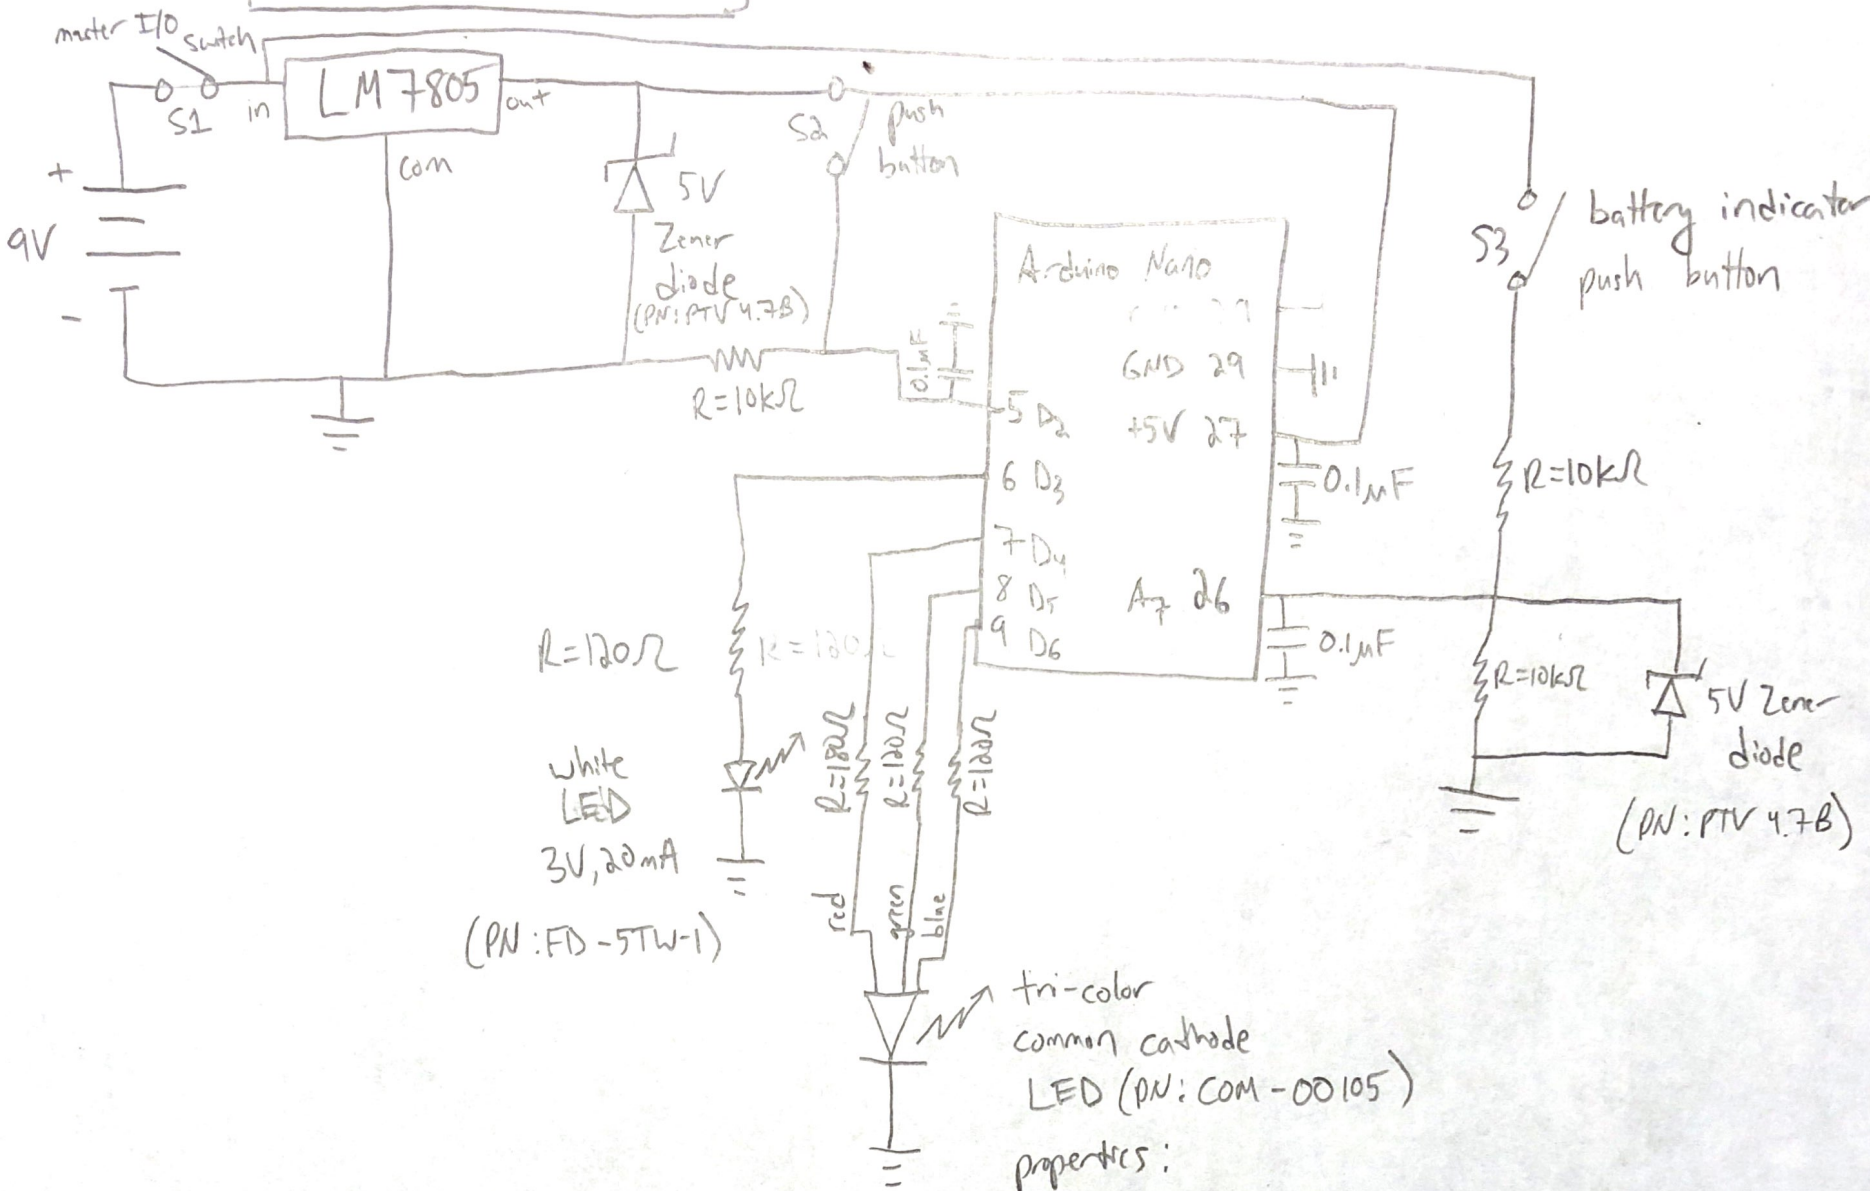 master I/O switch
S1
in
LM7805
out
com
+
9V
-
5V
Zener
diode
(PN: PTV 4.7B)
S2
push
button
R=10kΩ
0.1μF
Arduino Nano
GND 29
+5V 27
5 D2
6 D3
7 D4
8 D5
9 D6
A7 26
0.1μF
0.1μF
S3
battery indicator
push button
R=10kΩ
R=10kΩ
5V Zener
diode
(PN: PTV 4.7B)
R=120Ω
R=120Ω
white
LED
3V, 20mA
(PN: FD-5TW-1)
R=180Ω
R=120Ω
R=120Ω
red
green
blue
tri-color
common cathode
LED (PN: COM-00105)
properties: